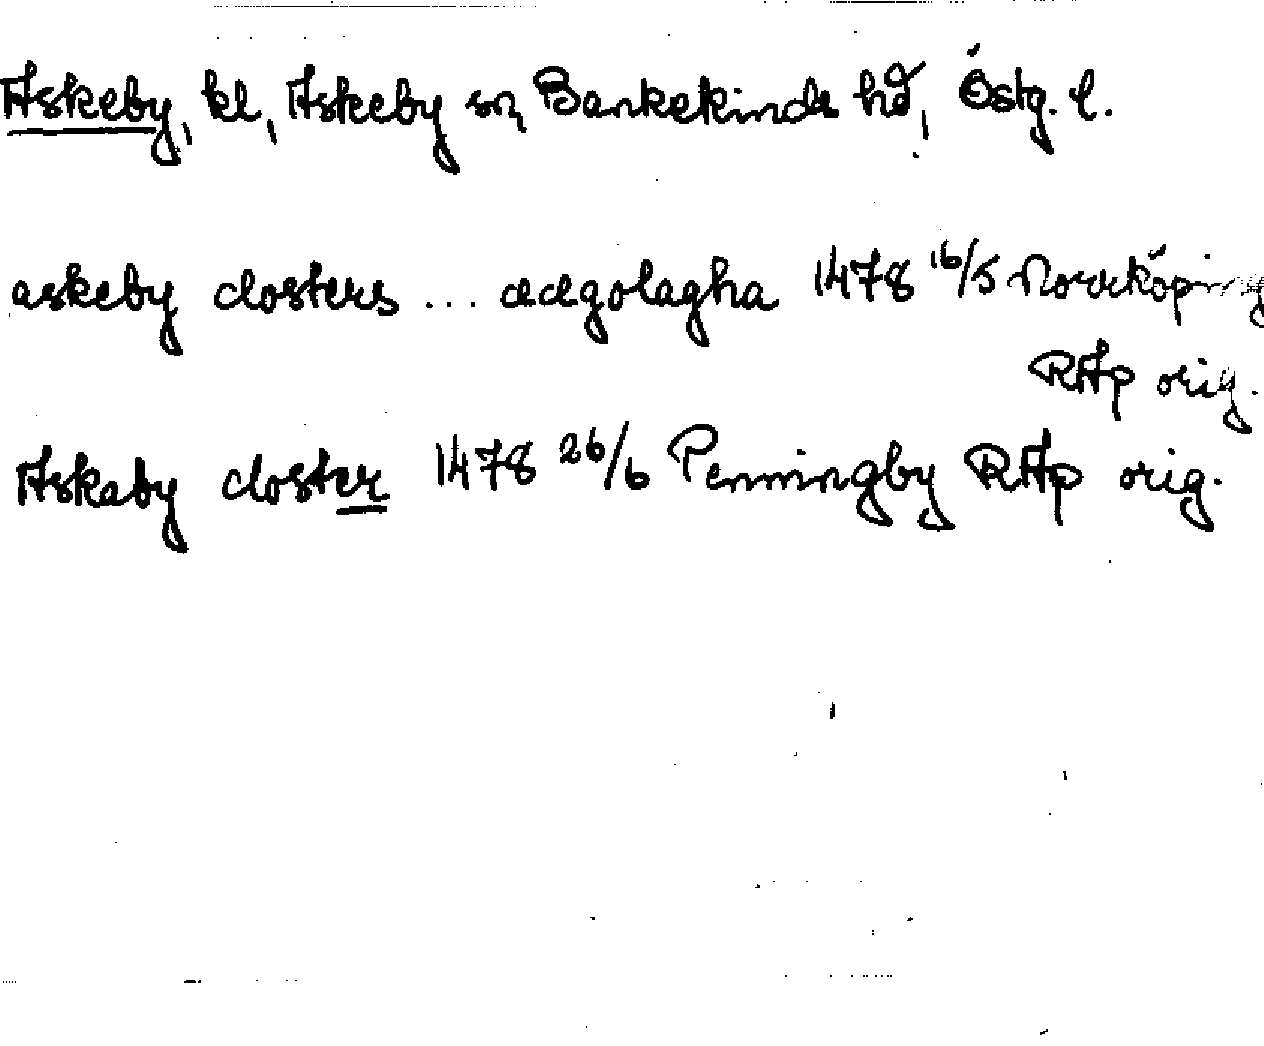 Askeby, kl, Askeby sn, Bankekinds hd, Östg. l.
askeby closters ... ædegolagha 1478 16/5 Norrköping
RAp orig.
Askaby closter 1478 26/6 Penningby RAp orig.